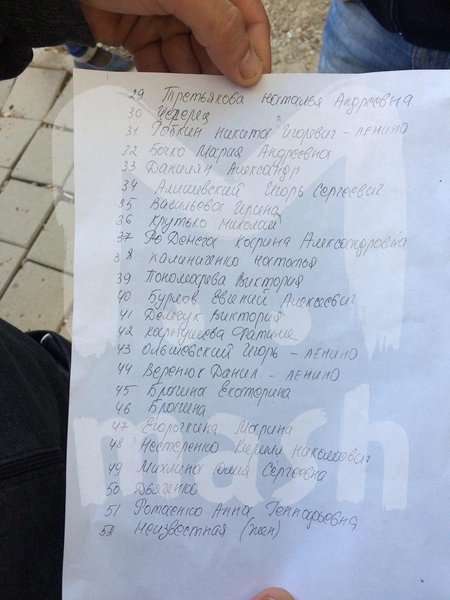 29 Третьякова Наталья Андреевна
30 Черерец
31 Рыбкин Никита Игоревич - ЛЕНИНО
32 Бочко Мария Андреевна
33 Даналян Александр
34 Алишевский Игорь Сергеевич
35 Васильева Ирина
36 Крутько Николай
37 Денега Карина Александровна
38 Калиниченко Наталья
39 Пономарева Виктория
40 Бурлов Евгений Алексеевич
41 Демчук Виктория
42 Карымшева Фатима
43 Ольшевский Игорь - ЛЕНИНО
44 Веренюк Данил - ЛЕНИНО
45 Брагина Екатерина
46 Брагина
47 Егорочкина Марина
48 Нестеренко Николаевич
49 Михлина Юлия Сергеевна
50 Дьяченко
51 Ротаенко Анна Геннадьевна
52 Неизвестная (жен)
mash